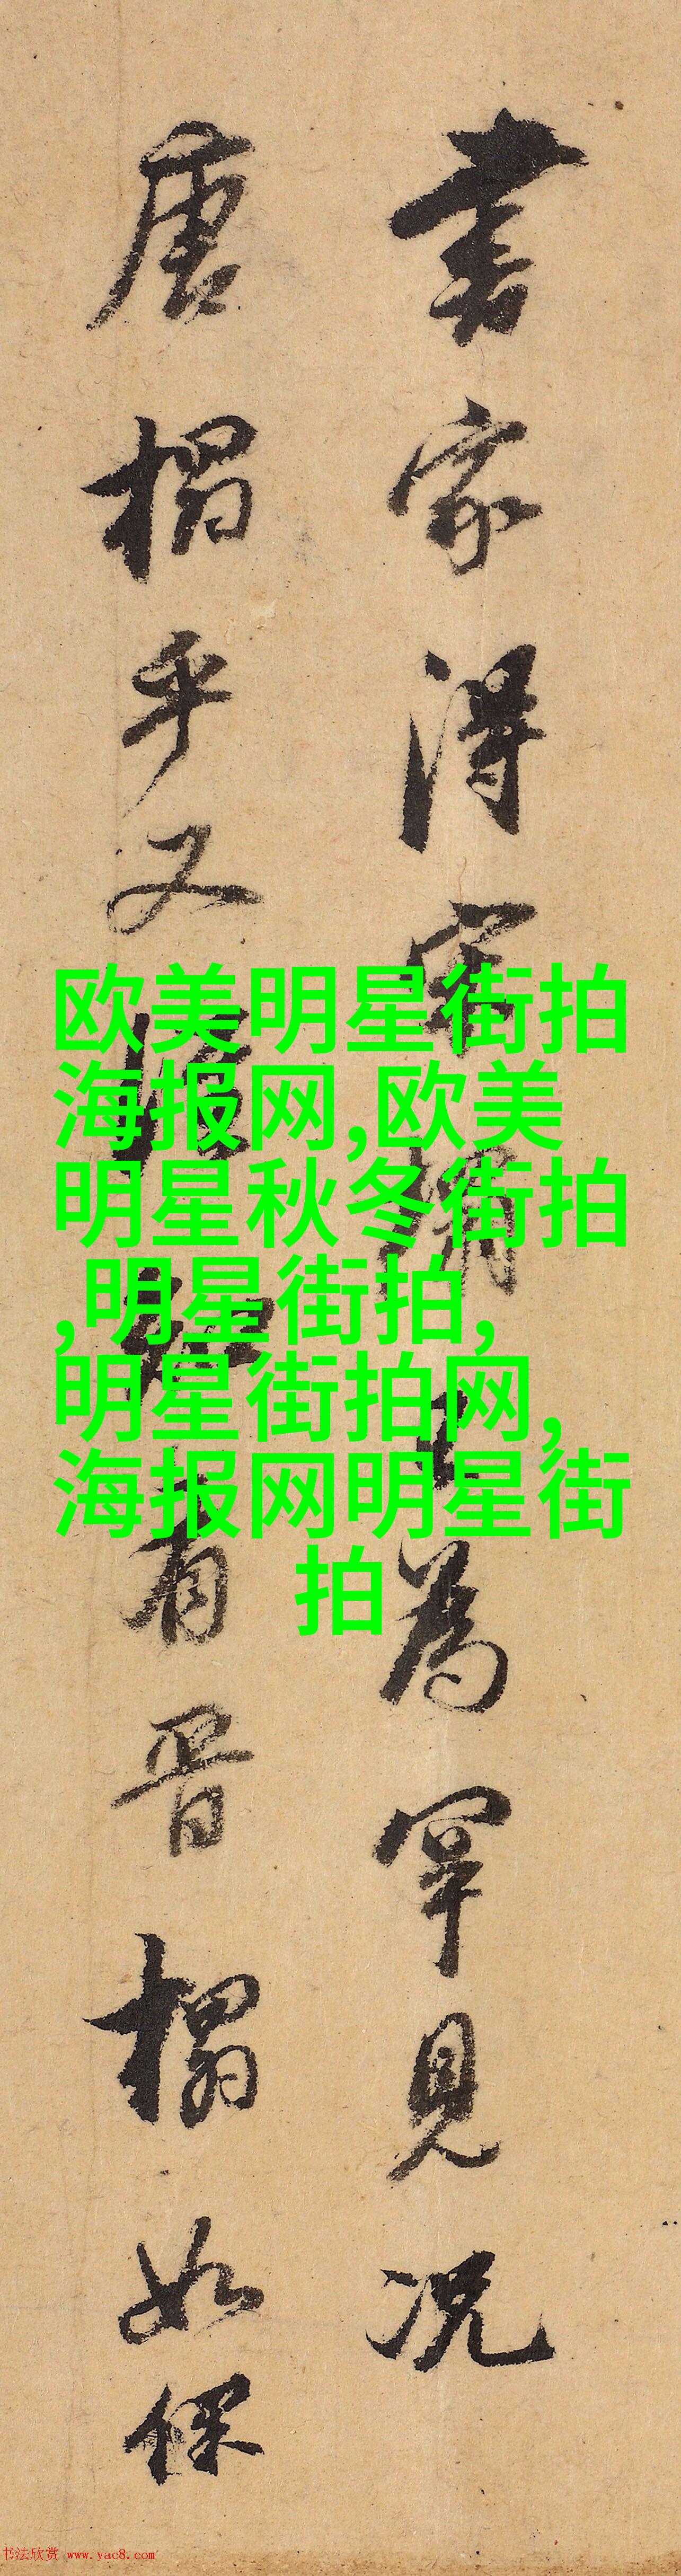 書家得宋搨以為罕見況
唐搨乎又有晋搨如保
欧美明星街拍
海报网,欧美
明星秋冬街拍
,明星街拍,
明星街拍网,
海报网明星街
拍
书法欣赏 www.yac8.com